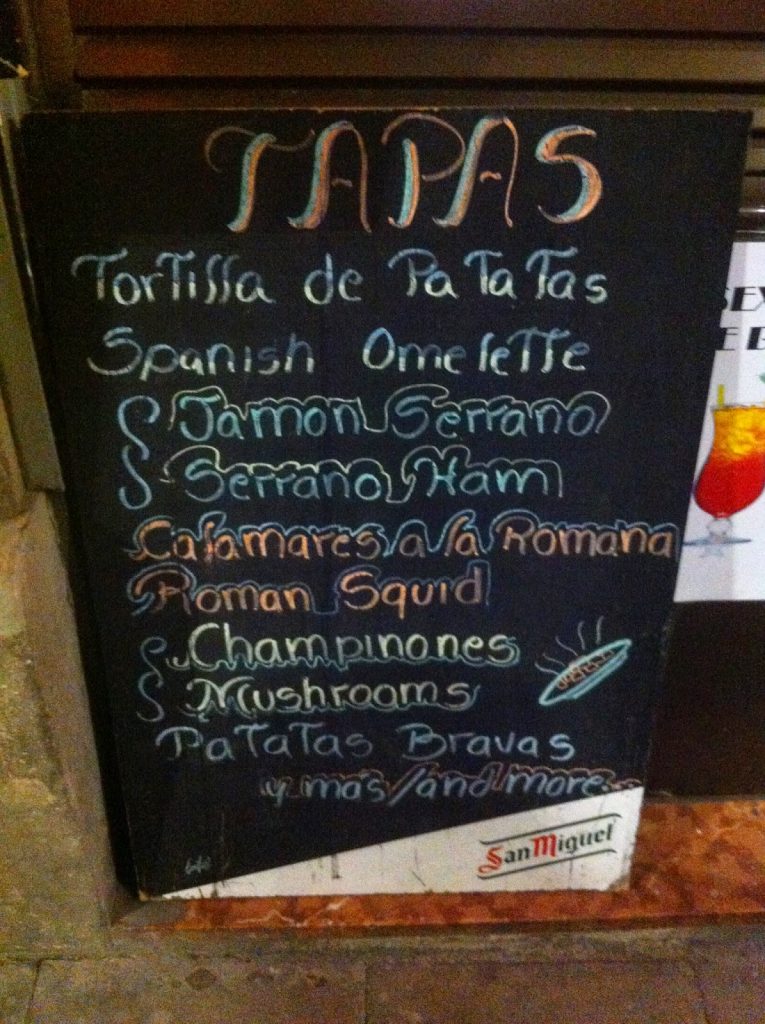 TAPAS
Tortilla de Patatas
Spanish Omelette
Jamon Serrano
Serrano Ham
Calamares a la Romana
Roman Squid
Champinones
Mushrooms
Patatas Bravas
y más/and more...
San Miguel
SEX